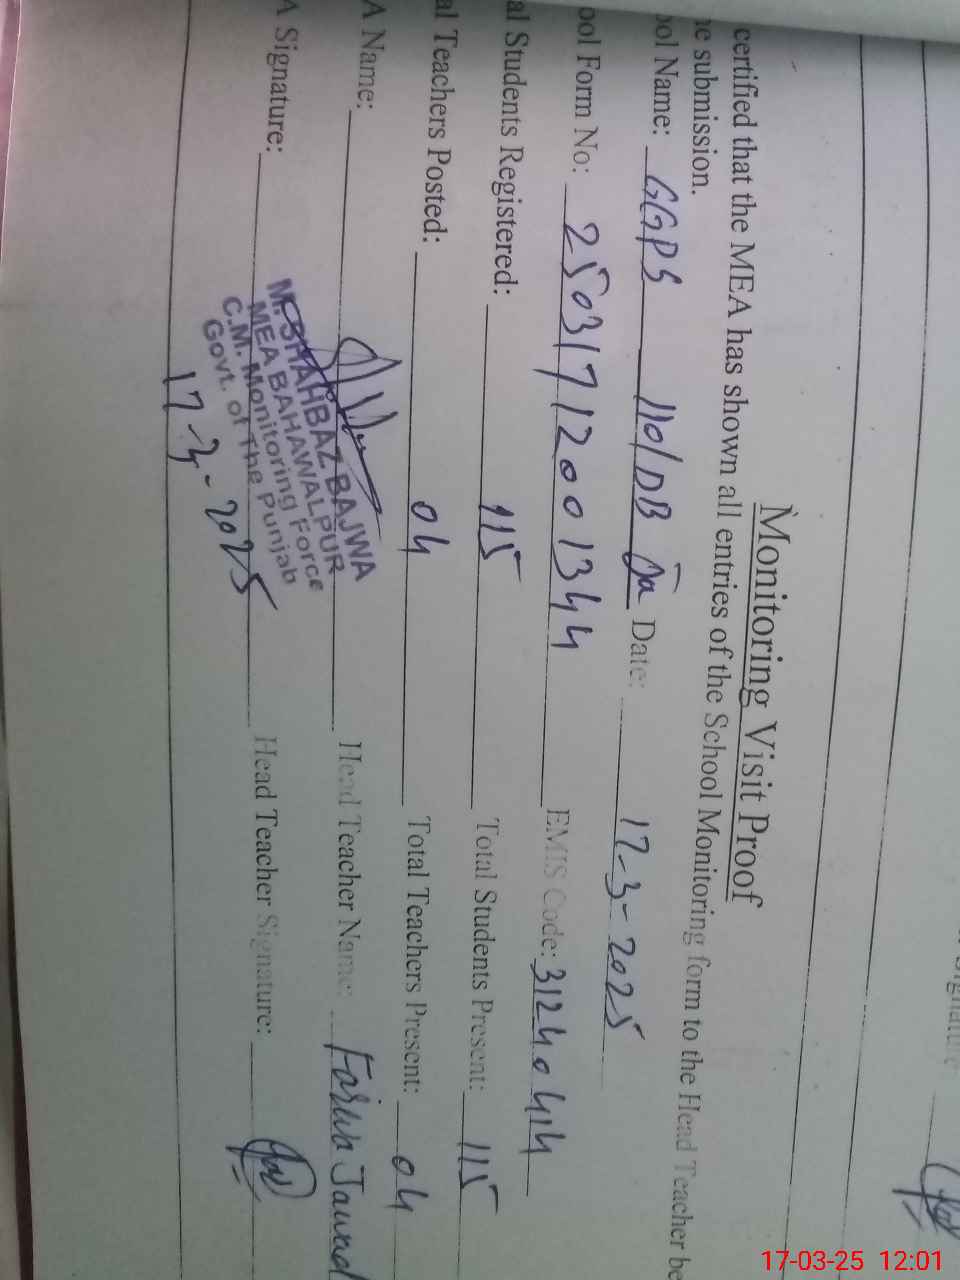 Monitoring Visit Proof
certified that the MEA has shown all entries of the School Monitoring form to the Head Teacher be
ne submission.
ool Name: GGPS 110/DB Date: 17-3-2025
ool Form No: 25031712001344 EMIS Code: 31240414
al Students Registered: 115 Total Students Present: 115
al Teachers Posted: 04 Total Teachers Present: 04
A Name: Head Teacher Name: Farwa Jawad
A Signature: Head Teacher Signature:
Mr. SHAHBAZ BAJWA
MEA BAHAWALPUR
C.M. Monitoring Force
Govt. of The Punjab
17-3-2025
17-03-25 12:01